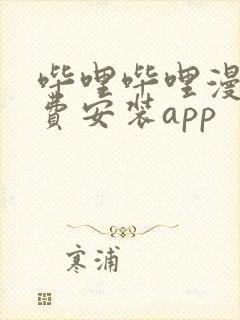 哔哩哔哩漫
费安装app
寒浦